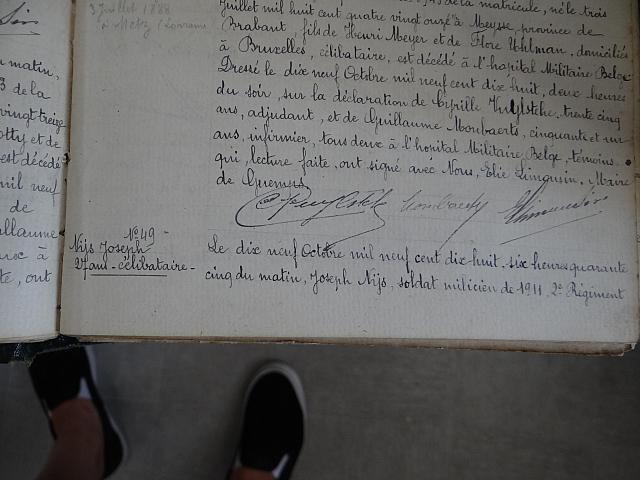 matin,
3 de la
vingt treize
otty et de
est décédé
mil neuf
de
illaume
aux à
té, ont
3 juillet 1888
à Metz (Lorraine)
de la matricule, né le trois
Juillet mil huit cent quatre vingt onze à Meysse, province de
Brabant, fils de Henri Meyer et de Flore Uhlman, domiciliés
à Bruxelles, célibataire, est décédé à l'hopital Militaire Belge
Dressé le dix neuf Octobre mil neuf cent dix huit, deux heures
du soir, sur la déclaration de Cyrille trente cinq
ans, adjudant, et de Guillaume Mombaerts, cinquante et un
ans, infirmier, tous deux à l'hopital Militaire Belge, témoins
qui, lecture faite, ont signé avec Nous, Elie Limousin, Maire
de Guemps
Mombaerts Elimousin
N° 49 -
Nijs Joseph
27 ans - célibataire -
Le dix neuf Octobre mil neuf cent dix-huit, six heures quarante
cinq du matin, Joseph Nijs, soldat milicien de 1911, 2e Régiment